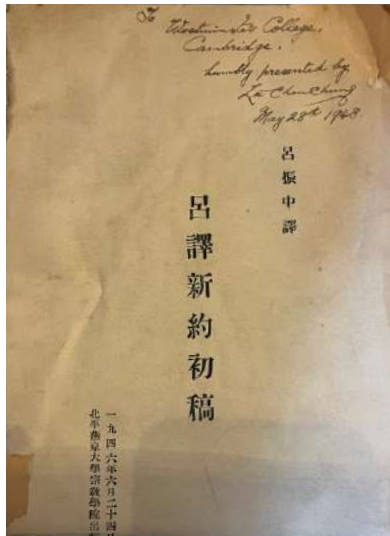 To Westminster College,
Cambridge.
humbly presented by
Lü Chen Chung
May 28th 1948
呂振中譯
呂譯新約初稿
一九四六年六月二十四日
北平燕京大學宗教學院出版